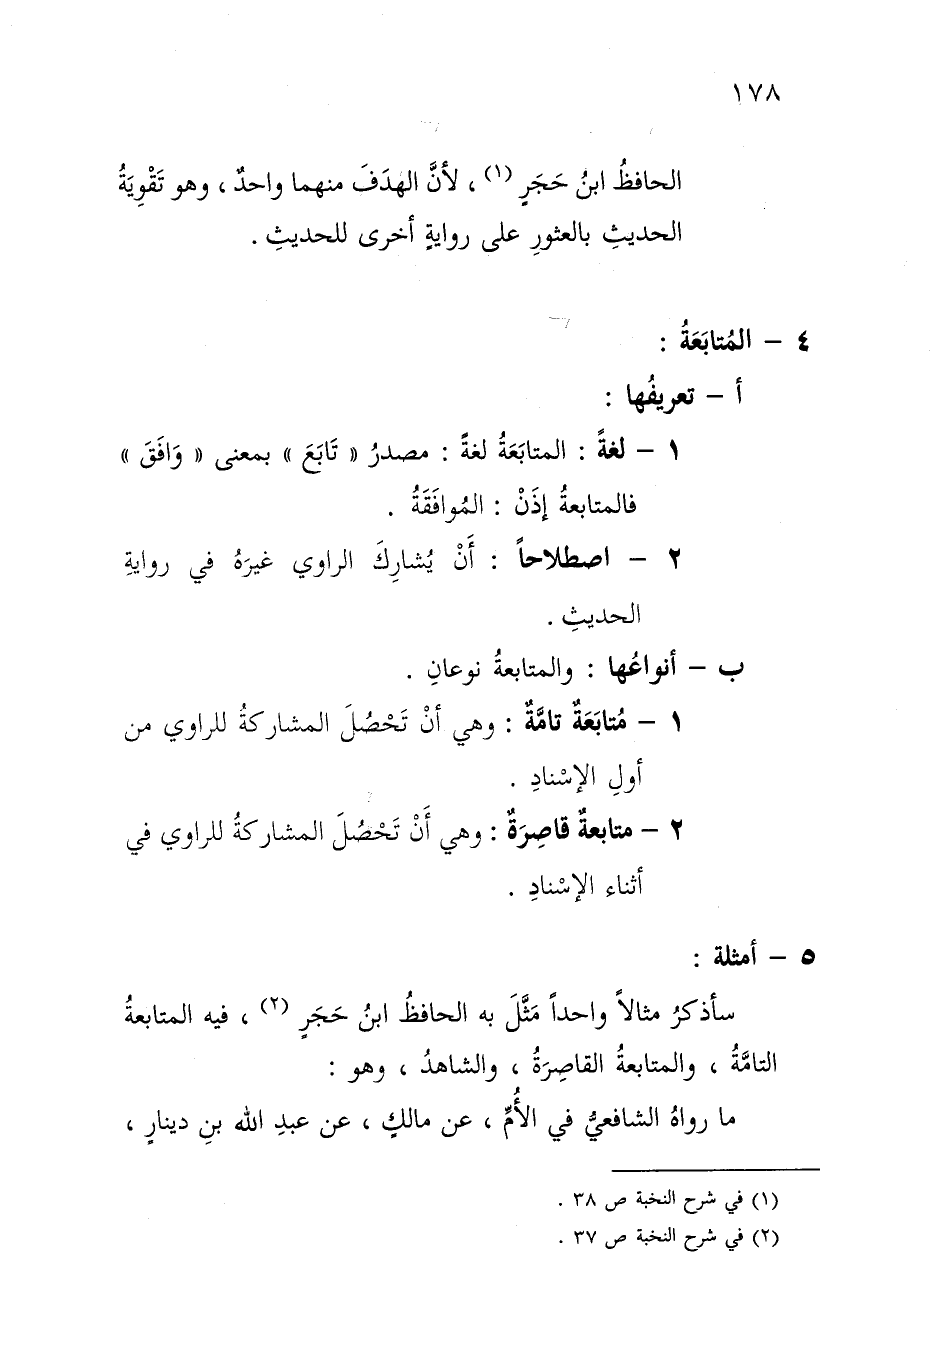 ١٧٨
الحافظُ ابنُ حَجَرٍ (١) ، لأنَّ الهدَفَ منهما واحدٌ ، وهو تَقْوِيَةُ
الحديثِ بالعثورِ على روايةٍ أخرى للحديثِ .
٤ – المُتابَعَةُ :
أ – تعريفُها :
١ – لغةً : المتابَعَةُ لغةً : مصدرُ « تَابَعَ » بمعنى « وَافَقَ »
فالمتابعةُ إذَنْ : المُوافَقَةُ .
٢ – اصطلاحاً : أَنْ يُشارِكَ الراوي غيرَهُ في روايةِ
الحديثِ .
ب – أنواعُها : والمتابعةُ نوعانِ .
١ – مُتابَعَةٌ تامَّةٌ : وهي أنْ تَحْصُلَ المشاركةُ للراوي من
أولِ الإسْنادِ .
٢ – متابعةٌ قاصِرَةٌ : وهي أَنْ تَحْصُلَ المشاركةُ للراوي في
أثناء الإسْنادِ .
٥ – أمثلة :
سأذكرُ مثالاً واحداً مَثَّلَ به الحافظُ ابنُ حَجَرٍ (٢) ، فيه المتابعةُ
التامَّةُ ، والمتابعةُ القاصِرَةُ ، والشاهدُ ، وهو :
ما رواهُ الشافعيُّ في الأُمِّ ، عن مالكٍ ، عن عبدِ الله بنِ دينارٍ ،
(١) في شرح النخبة ص ٣٨ .
(٢) في شرح النخبة ص ٣٧ .